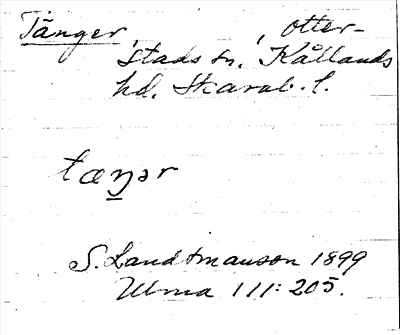 Tånger, , Otter-
stads sn. Kållands
hd. Skarab. l.
tæŋər
S. Landtmanson 1899
Ulma 111: 205.